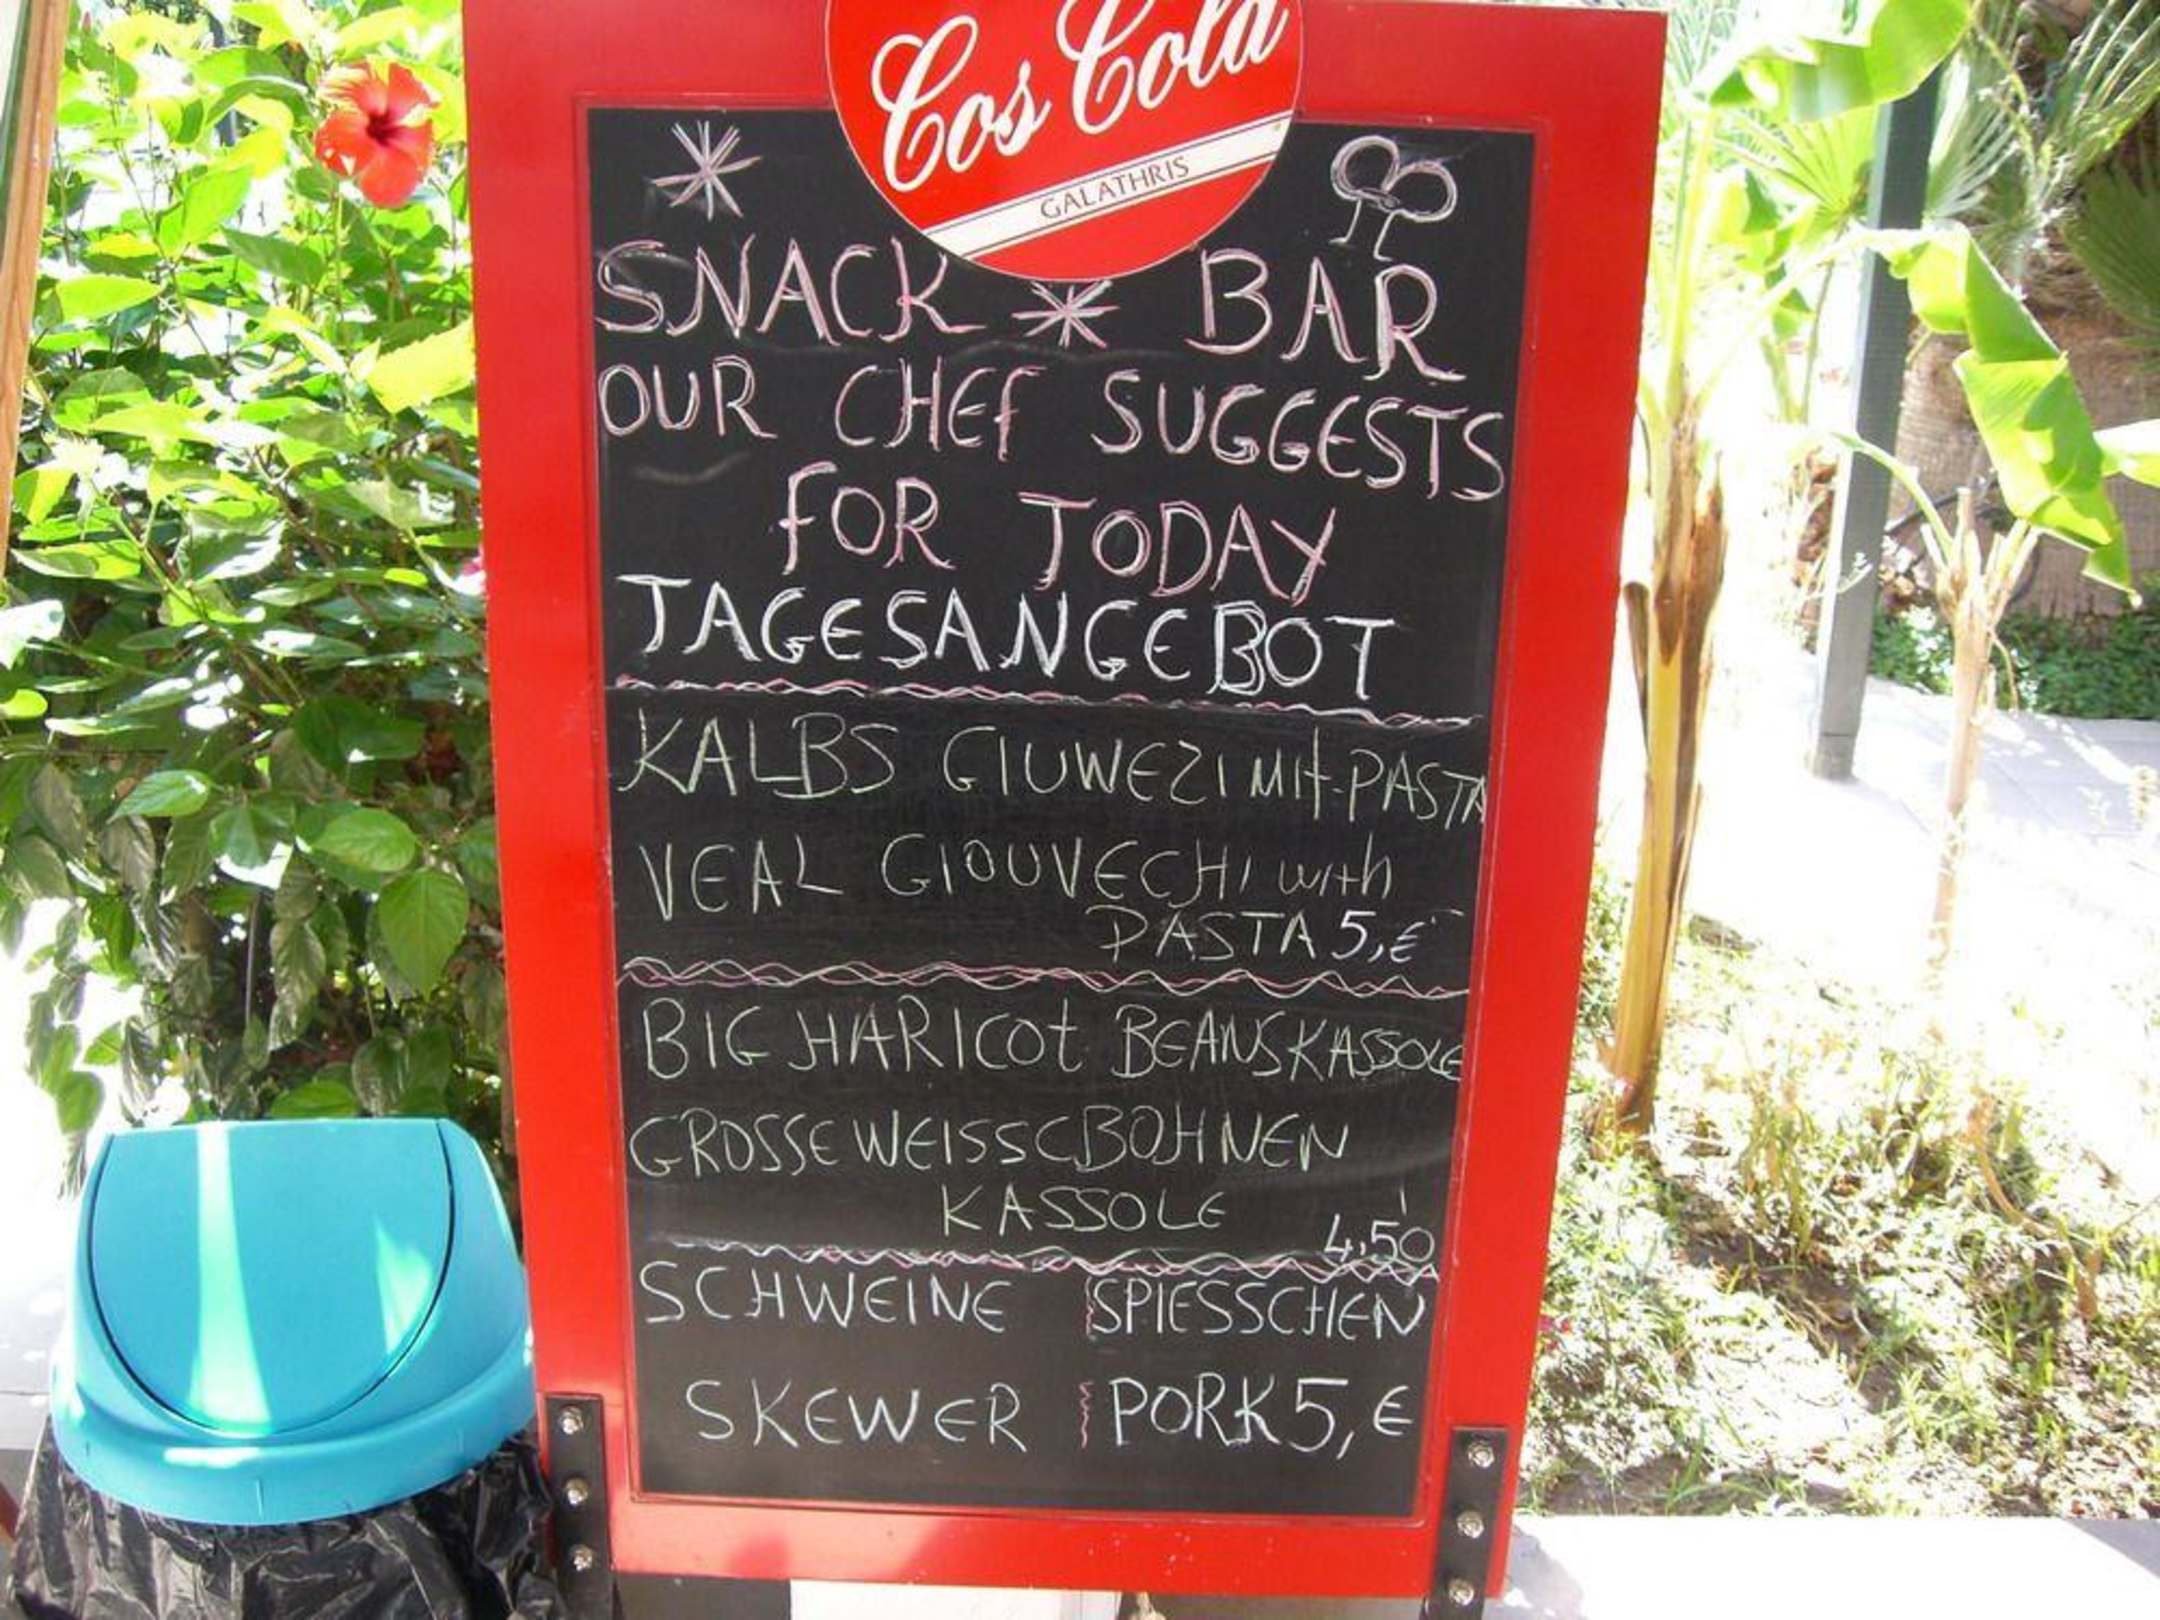 Cos Cola
GALATHRIS
SNACK * BAR
OUR CHEF SUGGESTS
FOR TODAY
TAGESANGEBOT
KALBS GIUWEZI MIt-PASTA
VEAL GIOUVECHI with
PASTA 5,€
BIG HARICOt BEANSKASSOLE
GROSSE WEISSEBOHNEN
KASSOLE 4,50
SCHWEINE SPIESSCHEN
SKEWER PORK 5,€